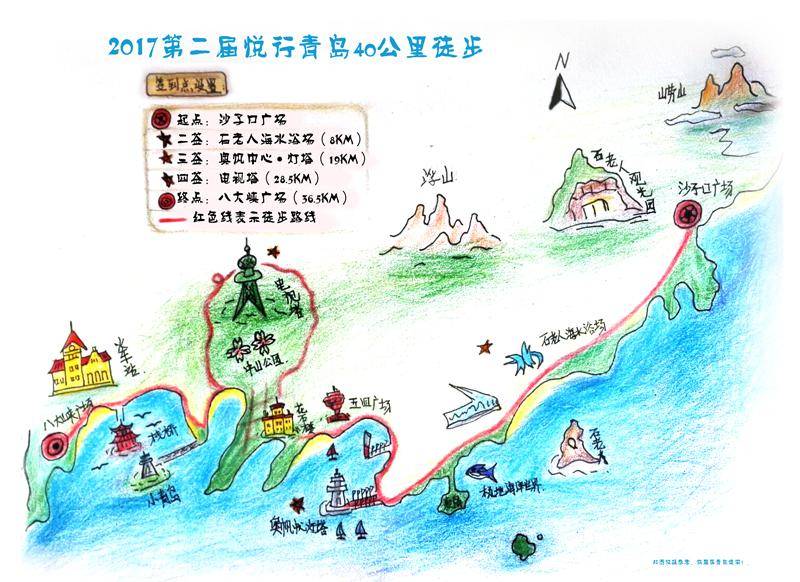 2017第二届悦行青岛40公里徒步
签到点设置
起点：沙子口广场
二签：石老人海水浴场（8KM）
三签：奥帆中心·灯塔（19KM）
四签：电视塔（28.5KM）
终点：八大峡广场（36.5KM）
红色线表示徒步路线
N
崂山
浮山
石老人
观光园
沙子口广场
电视塔
中山公园
火车站
石老人海水浴场
八大峡广场
栈桥
小青岛
花石楼
五四广场
石老人
极地海洋世界